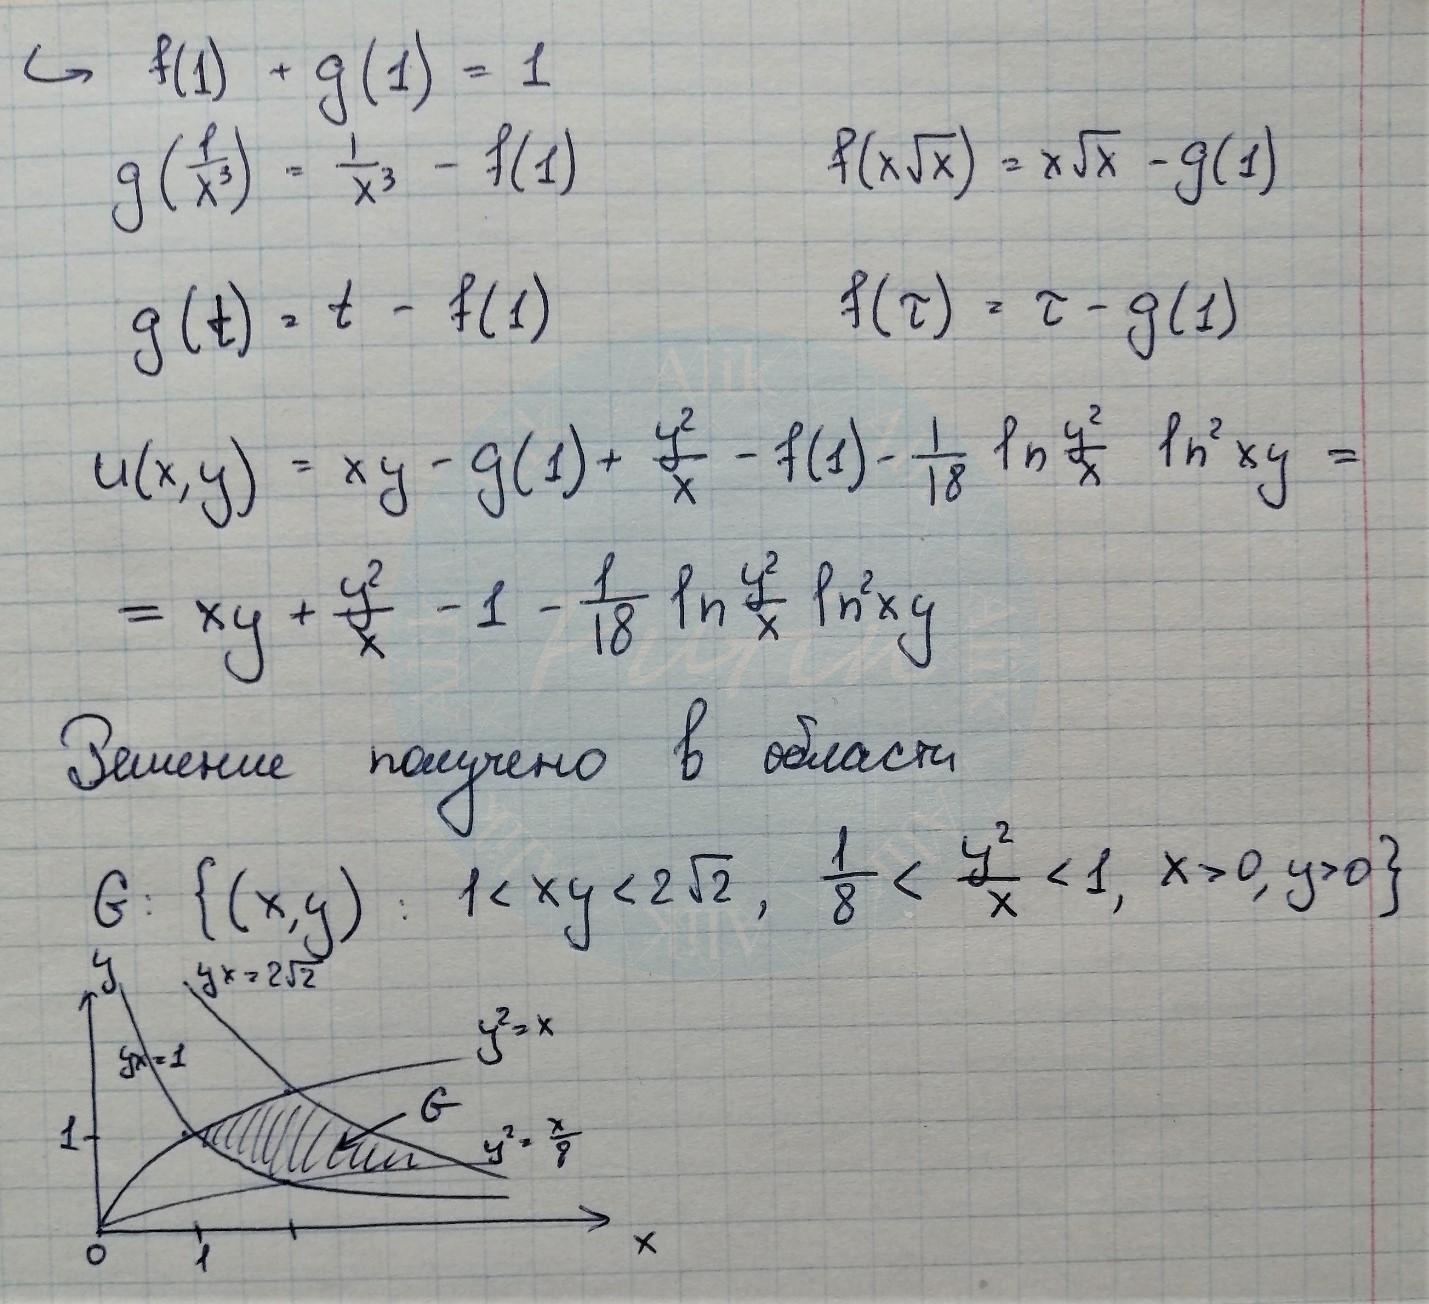 ↪ f(1) + g(1) = 1
g(1/x³) = 1/x³ - f(1) f(x√x) = x√x - g(1)
g(t) = t - f(1) f(τ) = τ - g(1)
u(x,y) = xy - g(1) + y²/x - f(1) - 1/18 ln y²/x ln² xy =
= xy + y²/x - 1 - 1/18 ln y²/x ln² xy
Решение получено в области
G: {(x,y) : 1 < xy < 2√2, 1/8 < y²/x < 1, x>0, y>0}
y
yx = 2√2
y² = x
yx = 1
G
1
y² = x/8
0
1
x
Alik